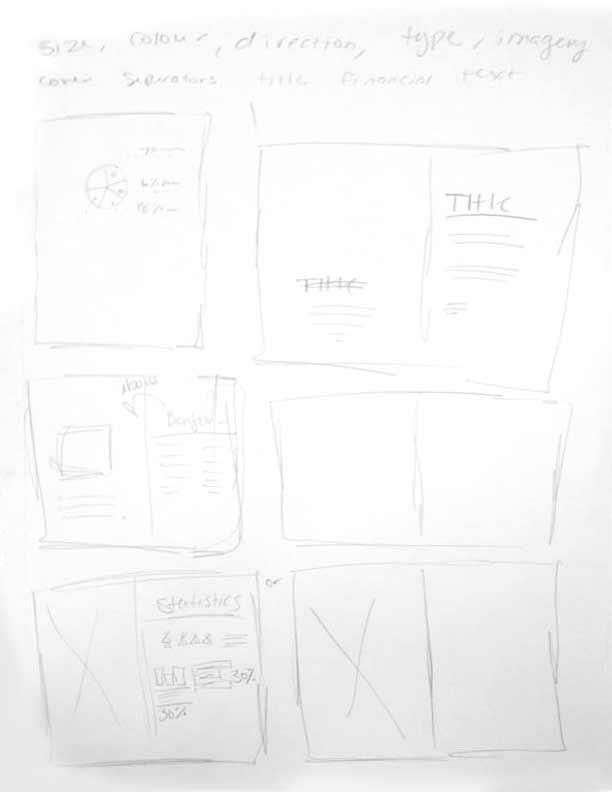 size, colour, direction, type, imagery
cover separators title financial text
Title
Title
Bonjour
or
Statistics
30%
30%